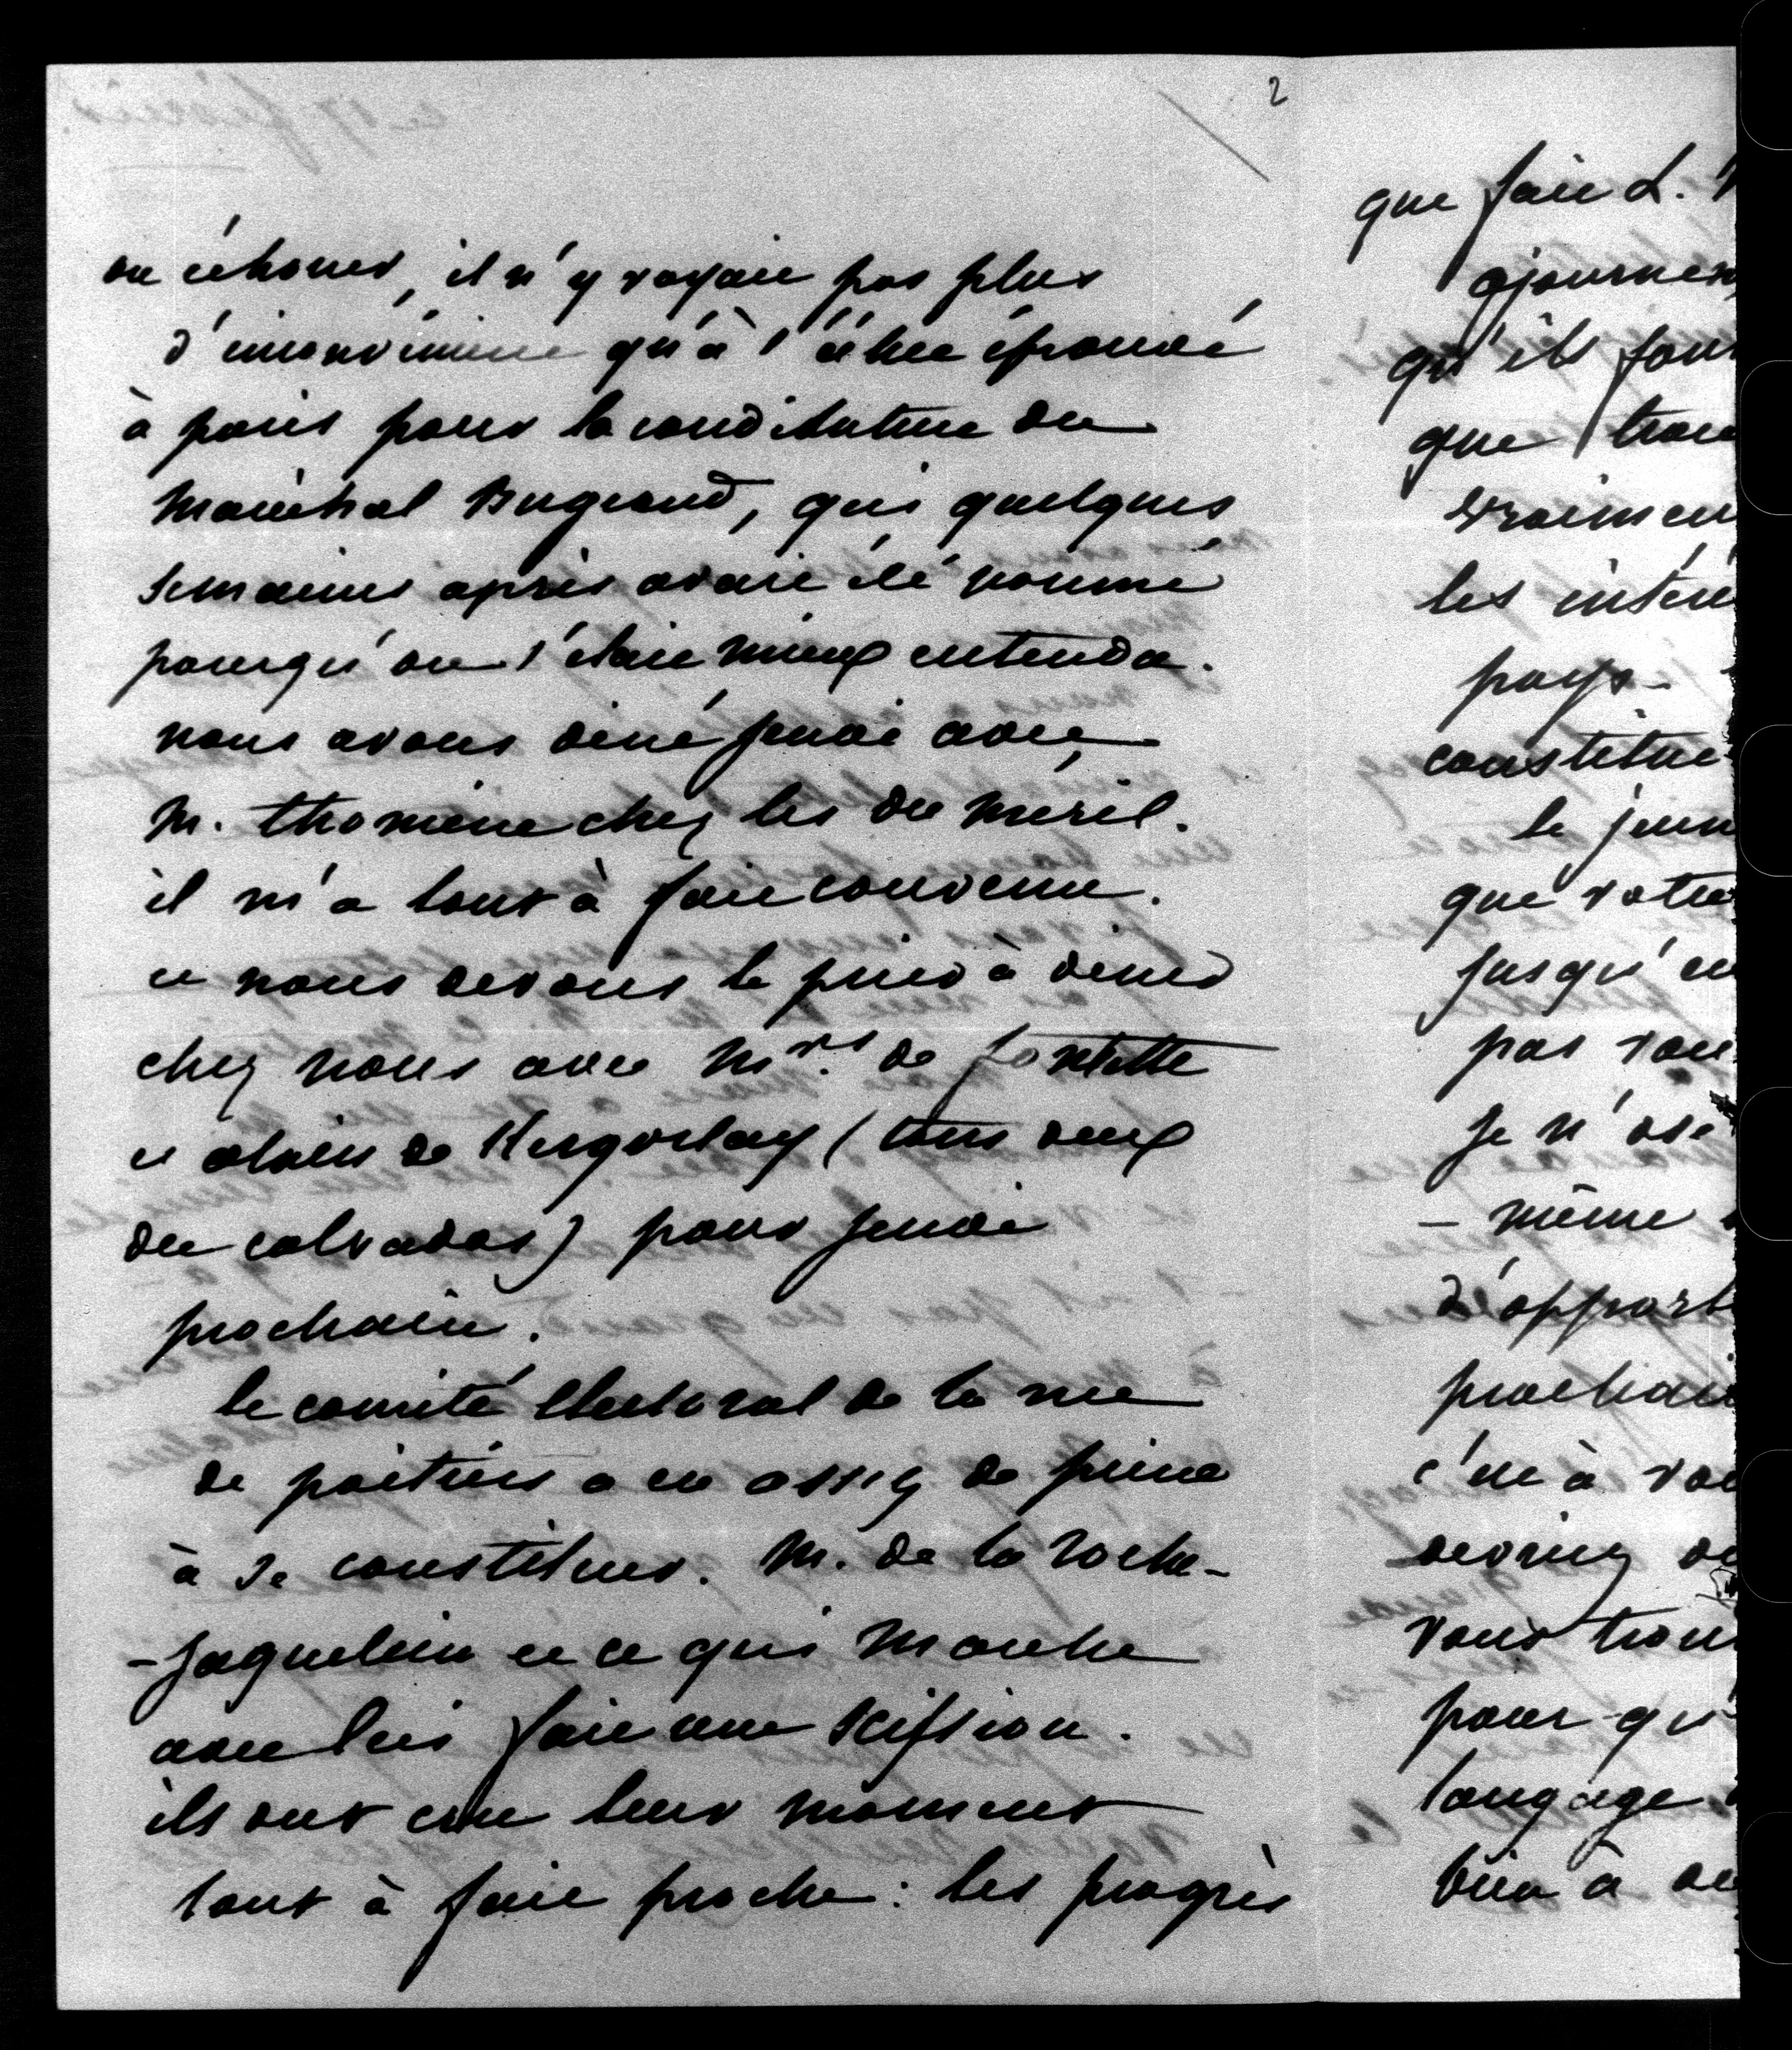 2
ou échouer, il n'y voyait pas plus
d'inconvénient qu'à l'échec éprouvé
à paris pour la candidature du
Maréchal Bugeaud, qui quelques
semaines après avait été nommé
parcequ'on s'était mieux entendu.
nous avons diné jeudi avec
M. thomine chez les du méril.
il m'a tout à fait convenu.
et nous devons le prier à diner
chez nous avec Mrs. de fontette
et alain de Kergorlay (tous deux
du calvados) pour jeudi
prochain.
le comité électoral de la rue
de poitiers a eu assez de peine
à se constituer. M. de la roche-
-jaquelein et ce qui marche
avec lui fait une scission.
ils ont cru leur moment
tout à fait proche : les progrès
que fait L.
ajournen
qu'ils font
que trou
vraimen
les intérê
pays-
constitue
le jeun
que votre
jusqu'
pas vou
je n'ose
- même
d'apport
prochain
c'est à vou
devriez de
vous trou
pour qu'
langage
bien à